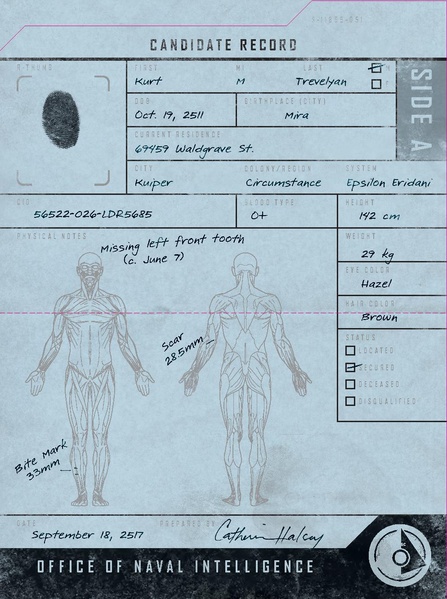 CANDIDATE RECORD
R-THUMB
FIRST MI LAST M
Kurt M Trevelyan F
DOB BIRTHPLACE (CITY)
Oct. 19, 2511 Mira
CURRENT RESIDENCE
69459 Waldgrave St.
CITY COLONY/REGION SYSTEM
Kuiper Circumstance Epsilon Eridani
SIDE A
CID BLOOD TYPE HEIGHT
56522-026-LDR5685 O+ 142 cm
PHYSICAL NOTES WEIGHT
Missing left front tooth
(c. June 7)
29 kg
EYE COLOR
Hazel
HAIR COLOR
Brown
Scar
28.5mm
STATUS
LOCATED
SECURED
DECEASED
DISQUALIFIED
Bite Mark
33mm
DATE PREPARED BY
September 18, 2517 Catherin Halsey
OFFICE OF NAVAL INTELLIGENCE